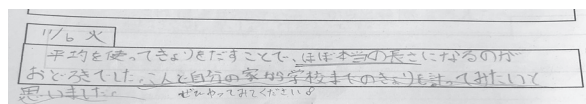 11/6 火
平均を使ってきょりをだすことで、ほぼ本当の長さになるのが
おどろきでした。こんど自分の家から学校までのきょりを計ってみたいと
思いました。 ぜひやってみてください♪